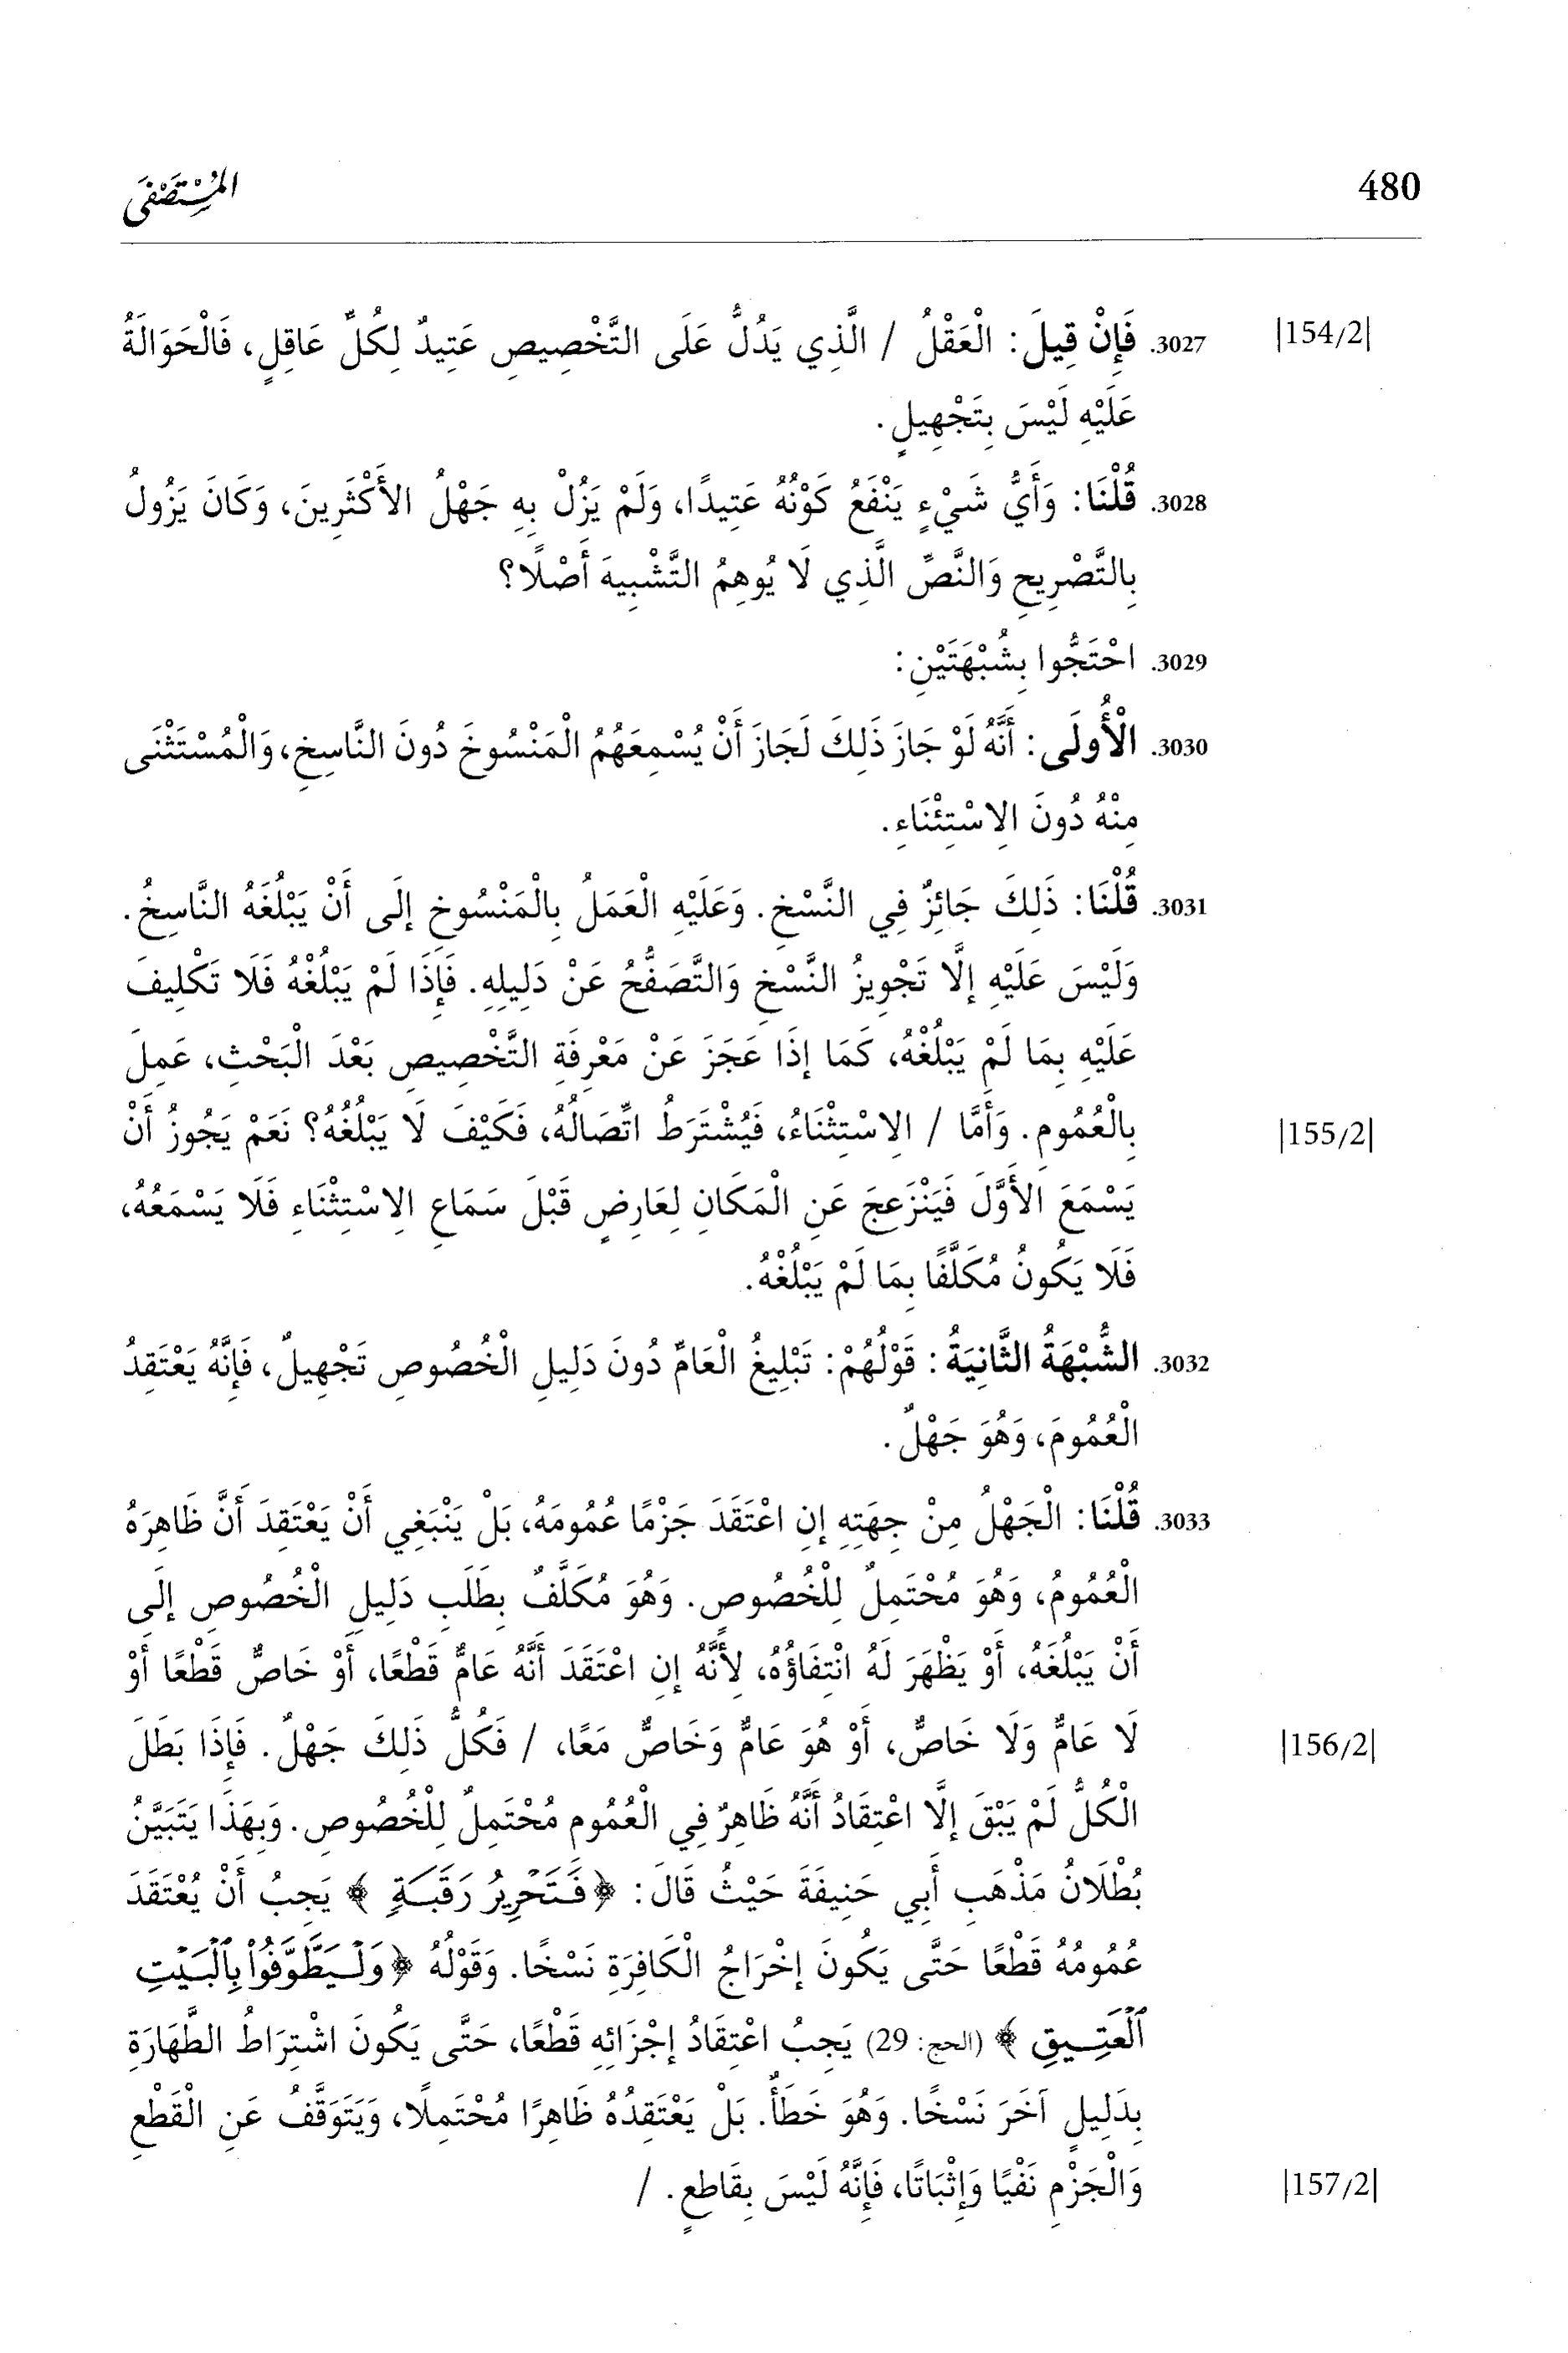 480
المُسْتَصْفَى
|154/2|
3027. فَإِنْ قِيلَ: الْعَقْلُ / الَّذِي يَدُلُّ عَلَى التَّخْصِيصِ عَتِيدٌ لِكُلِّ عَاقِلٍ، فَالْحَوَالَةُ
عَلَيْهِ لَيْسَ بِتَجْهِيلٍ.
3028. قُلْنَا: وَأَيُّ شَيْءٍ يَنْفَعُ كَوْنُهُ عَتِيدًا، وَلَمْ يَزُلْ بِهِ جَهْلُ الأَكْثَرِينَ، وَكَانَ يَزُولُ
بِالتَّصْرِيحِ وَالنَّصِّ الَّذِي لَا يُوهِمُ التَّشْبِيهَ أَصْلًا؟
3029. احْتَجُّوا بِشُبْهَتَيْنِ:
3030. الْأُولَى: أَنَّهُ لَوْ جَازَ ذَلِكَ لَجَازَ أَنْ يُسْمِعَهُمُ الْمَنْسُوخَ دُونَ النَّاسِخِ، وَالْمُسْتَثْنَى
مِنْهُ دُونَ الِاسْتِثْنَاءِ.
3031. قُلْنَا: ذَلِكَ جَائِزٌ فِي النَّسْخِ. وَعَلَيْهِ الْعَمَلُ بِالْمَنْسُوخِ إِلَى أَنْ يَبْلُغَهُ النَّاسِخُ.
وَلَيْسَ عَلَيْهِ إِلَّا تَجْوِيزُ النَّسْخِ وَالتَّصَفُّحُ عَنْ دَلِيلِهِ. فَإِذَا لَمْ يَبْلُغْهُ فَلَا تَكْلِيفَ
عَلَيْهِ بِمَا لَمْ يَبْلُغْهُ، كَمَا إِذَا عَجَزَ عَنْ مَعْرِفَةِ التَّخْصِيصِ بَعْدَ الْبَحْثِ، عَمِلَ
بِالْعُمُومِ. وَأَمَّا / الِاسْتِثْنَاءُ، فَيُشْتَرَطُ اتِّصَالُهُ، فَكَيْفَ لَا يَبْلُغُهُ؟ نَعَمْ يَجُوزُ أَنْ
|155/2|
يَسْمَعَ الأَوَّلَ فَيَنْزَعِجَ عَنِ الْمَكَانِ لِعَارِضٍ قَبْلَ سَمَاعِ الِاسْتِثْنَاءِ فَلَا يَسْمَعُهُ،
فَلَا يَكُونُ مُكَلَّفًا بِمَا لَمْ يَبْلُغْهُ.
3032. الشُّبْهَةُ الثَّانِيَةُ: قَوْلُهُمْ: تَبْلِيغُ الْعَامِّ دُونَ دَلِيلِ الْخُصُوصِ تَجْهِيلٌ، فَإِنَّهُ يَعْتَقِدُ
الْعُمُومَ، وَهُوَ جَهْلٌ.
3033. قُلْنَا: الْجَهْلُ مِنْ جِهَتِهِ إِنِ اعْتَقَدَ جَزْمًا عُمُومَهُ، بَلْ يَنْبَغِي أَنْ يَعْتَقِدَ أَنَّ ظَاهِرَهُ
الْعُمُومُ، وَهُوَ مُحْتَمِلٌ لِلْخُصُوصِ. وَهُوَ مُكَلَّفٌ بِطَلَبِ دَلِيلِ الْخُصُوصِ إِلَى
أَنْ يَبْلُغَهُ، أَوْ يَظْهَرَ لَهُ انْتِفَاؤُهُ، لأَنَّهُ إِنِ اعْتَقَدَ أَنَّهُ عَامٌّ قَطْعًا، أَوْ خَاصٌّ قَطْعًا أَوْ
لَا عَامٌّ وَلَا خَاصٌّ، أَوْ هُوَ عَامٌّ وَخَاصٌّ مَعًا، / فَكُلُّ ذَلِكَ جَهْلٌ. فَإِذَا بَطَلَ
|156/2|
الْكُلُّ لَمْ يَبْقَ إِلَّا اعْتِقَادُ أَنَّهُ ظَاهِرٌ فِي الْعُمُومِ مُحْتَمِلٌ لِلْخُصُوصِ. وَبِهَذَا يَتَبَيَّنُ
بُطْلَانُ مَذْهَبِ أَبِي حَنِيفَةَ حَيْثُ قَالَ: ﴿فَتَحْرِيرُ رَقَبَةٍ﴾ يَجِبُ أَنْ يُعْتَقَدَ
عُمُومُهُ قَطْعًا حَتَّى يَكُونَ إِخْرَاجُ الْكَافِرَةِ نَسْخًا. وَقَوْلُهُ ﴿وَلْيَطَّوَّفُوا۟ بِٱلْبَيْتِ
ٱلْعَتِيقِ﴾ (الحج: 29) يَجِبُ اعْتِقَادُ إِجْزَائِهِ قَطْعًا، حَتَّى يَكُونَ اشْتِرَاطُ الطَّهَارَةِ
بِدَلِيلٍ آخَرَ نَسْخًا. وَهُوَ خَطَأٌ. بَلْ يَعْتَقِدُهُ ظَاهِرًا مُحْتَمِلًا، وَيَتَوَقَّفُ عَنِ الْقَطْعِ
وَالْجَزْمِ نَفْيًا وَإِثْبَاتًا، فَإِنَّهُ لَيْسَ بِقَاطِعٍ. /
|157/2|